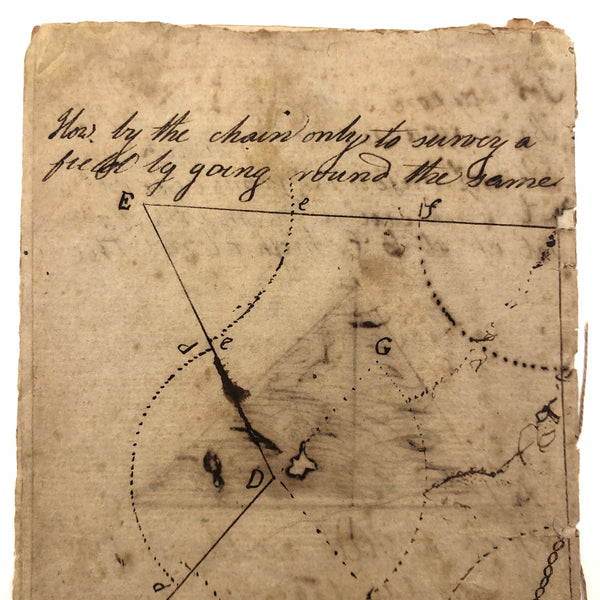 How by the chain only to survey a
field by going round the same
E e f
d e
G
D